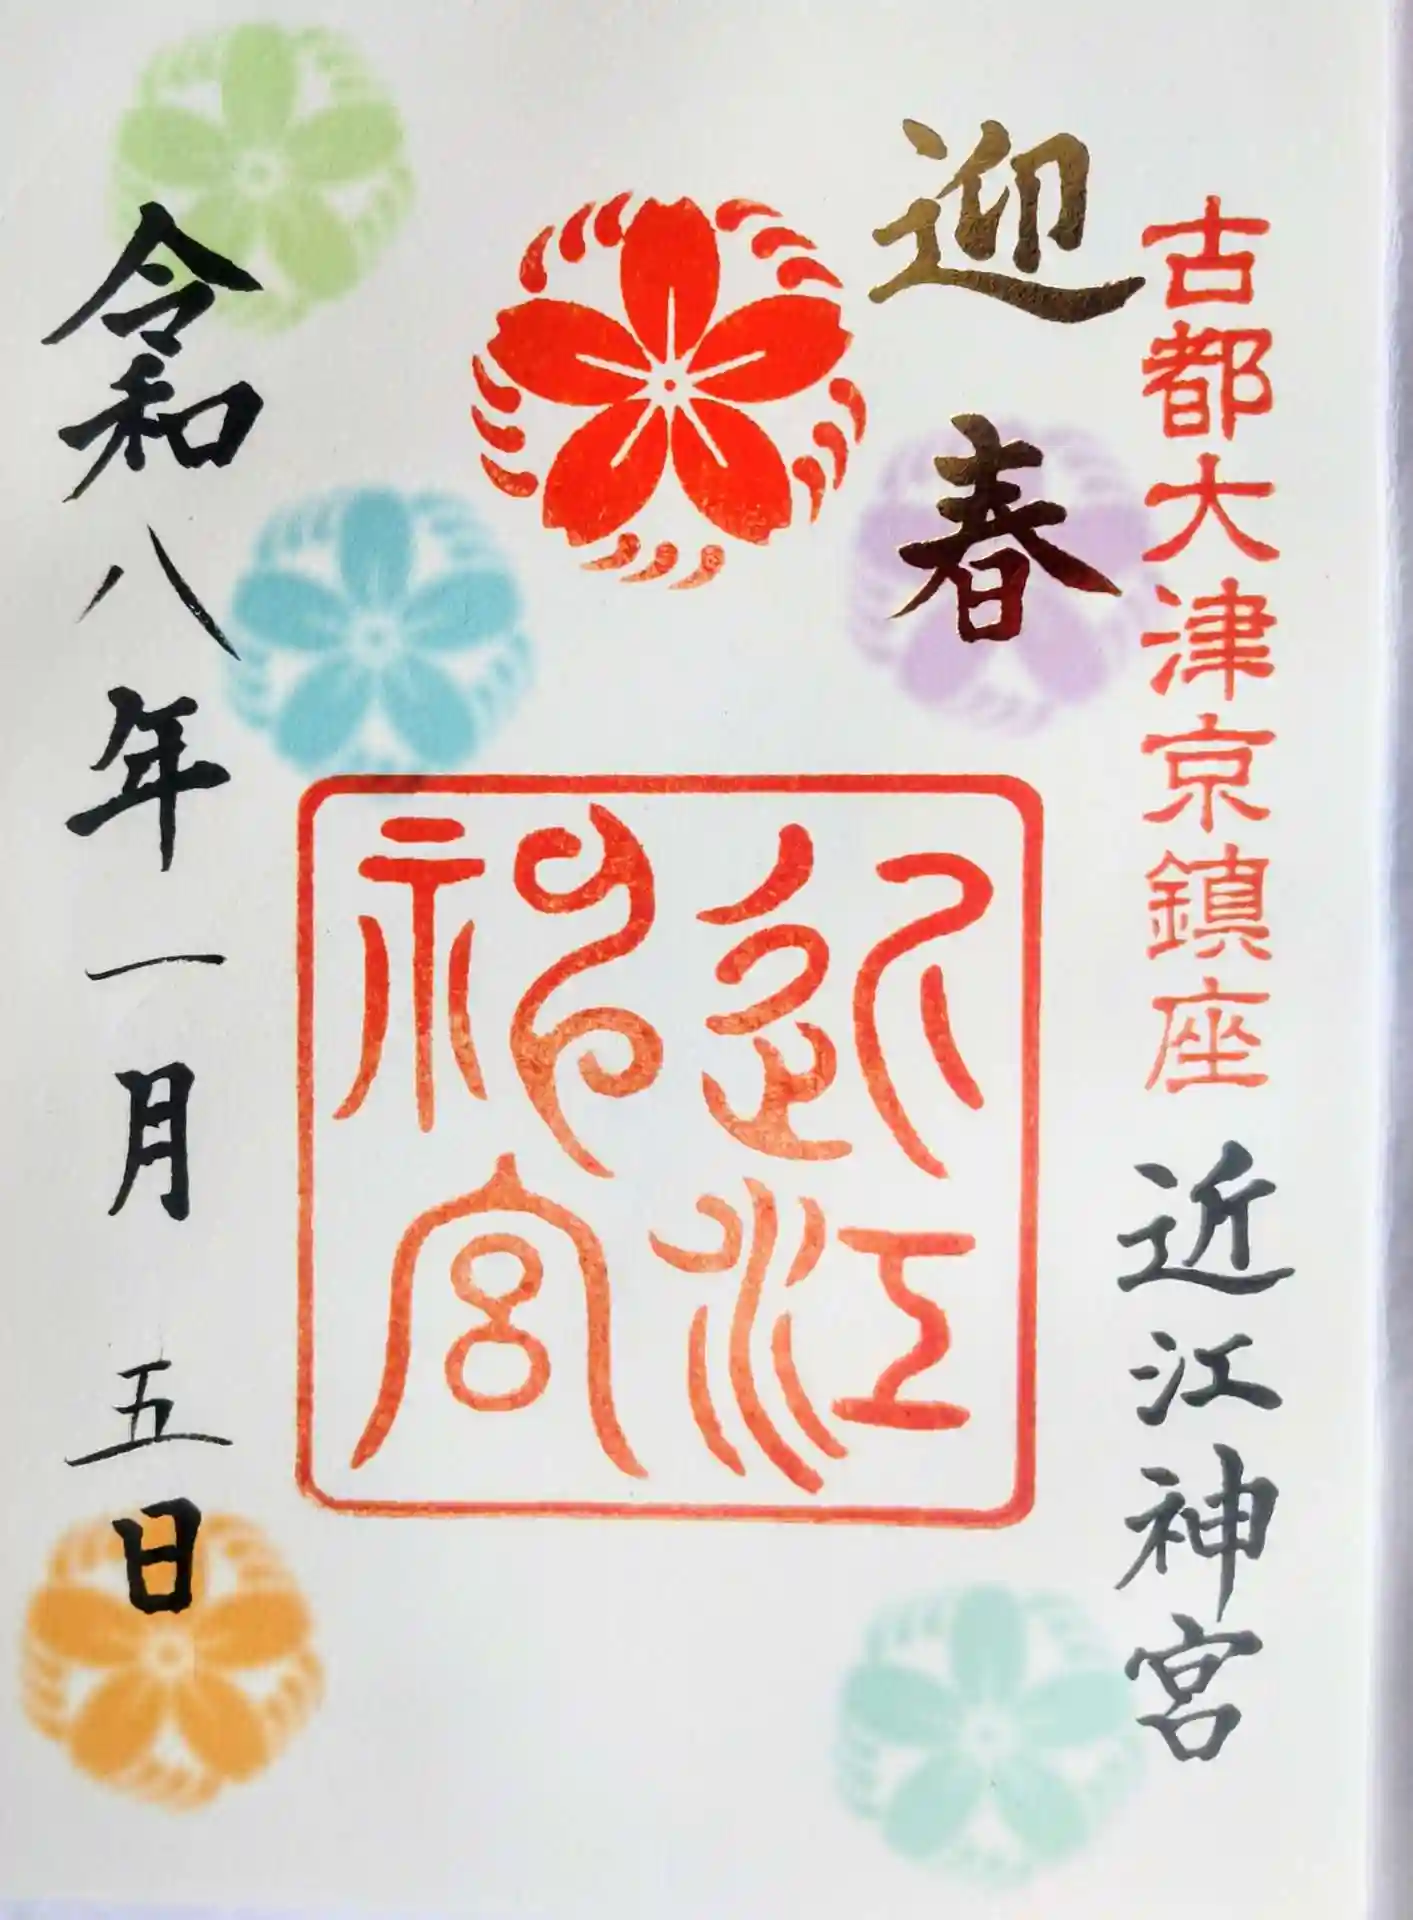 古都大津京鎮座
近江神宮
迎春
近江
神宮
令和八年一月五日